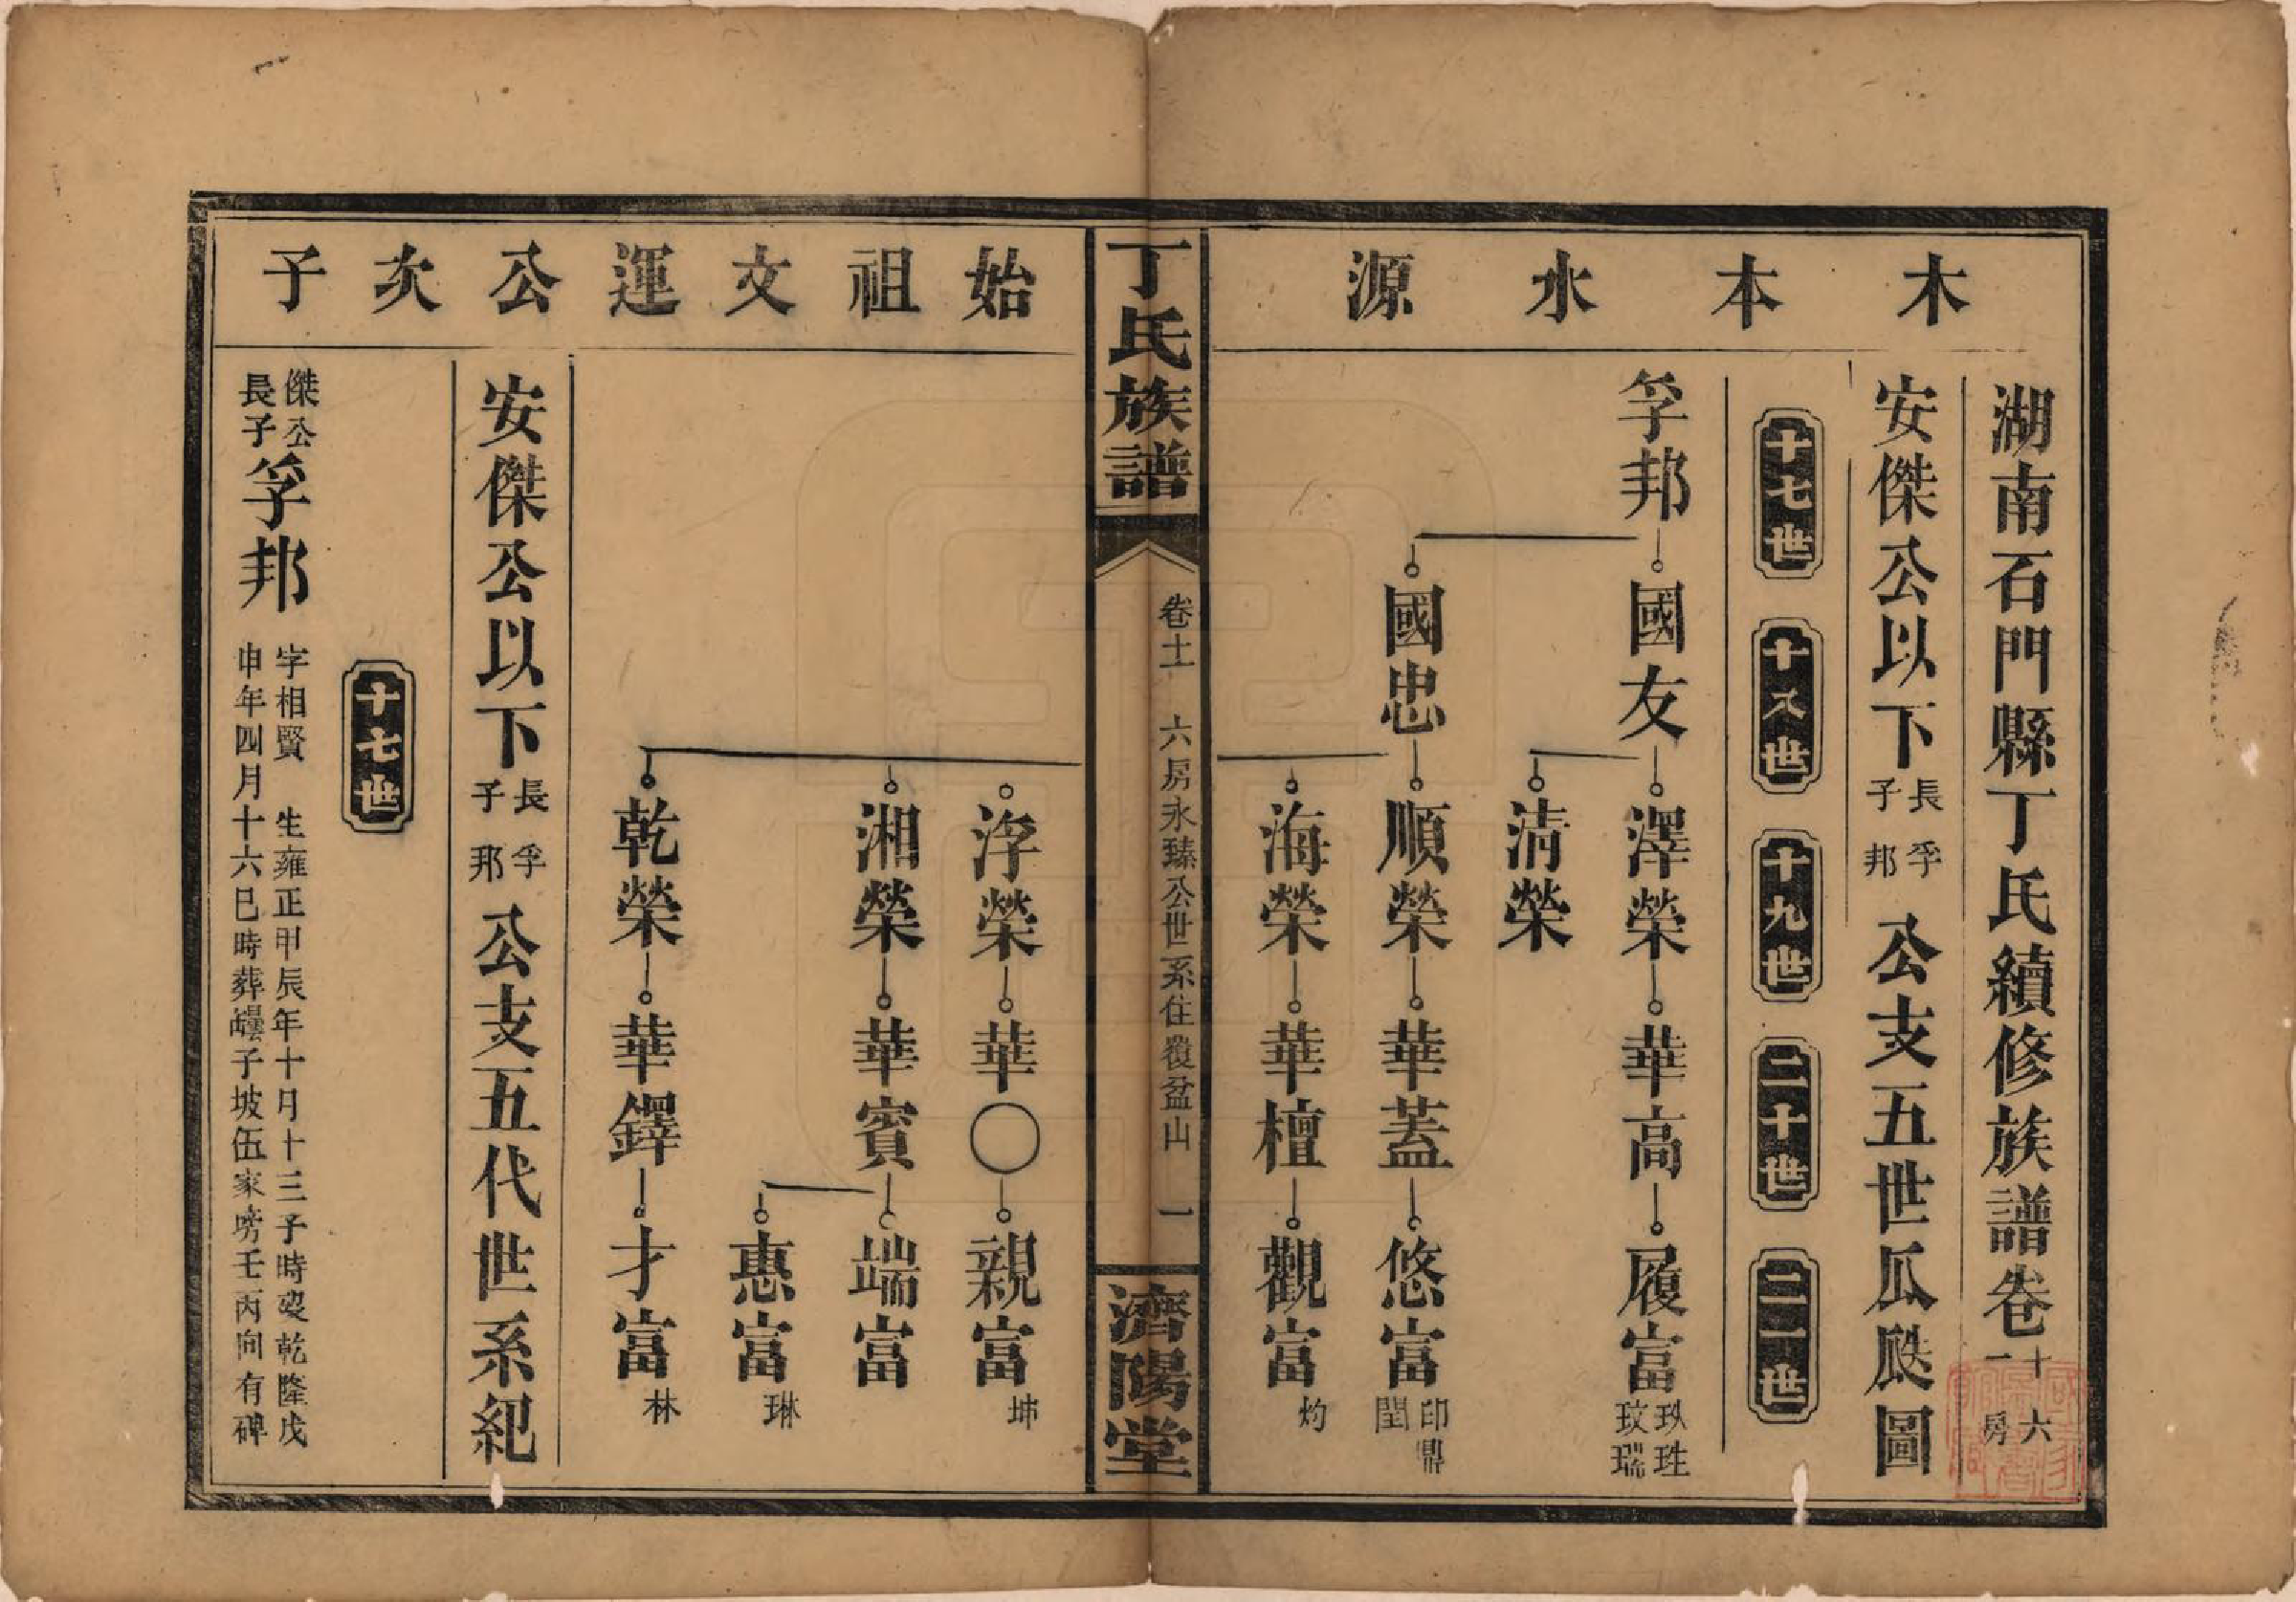 木本水源
湖南石門縣丁氏續修族譜卷十一 六房
安傑公以下長子孚邦公支五世瓜瓞圖
十七世 十八世 十九世 二十世 二一世
孚邦 國友 澤榮 華高 履富 玖珄 玟瑞
清榮
國忠 順榮 華蓋 悠富 印鼎 閏
海榮 華檀 觀富 灼
丁氏族譜 卷十一 六房永臻公世系住覆盆山 一 濟陽堂
始祖文運公次子
浮榮 華〇 親富 坤
湘榮 華賓 端富
惠富 琳
乾榮 華鐸 才富 林
安傑公以下長子孚邦公支五代世系紀
十七世
傑公長子孚邦 字相賢 生雍正甲辰年十月十三子時歿乾隆戊
申年四月十六巳時葬子坡伍家塝壬丙向有碑